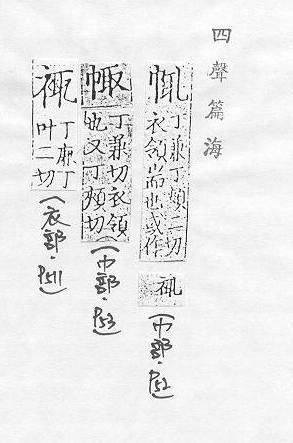 四聲篇海
㡇
丁兼丁頰二切
衣領耑也或作
(巾部.P52)
丁兼切衣領
也又丁頰切
(巾部.P53)
丁兼丁
叶二切
(衣部.P511)